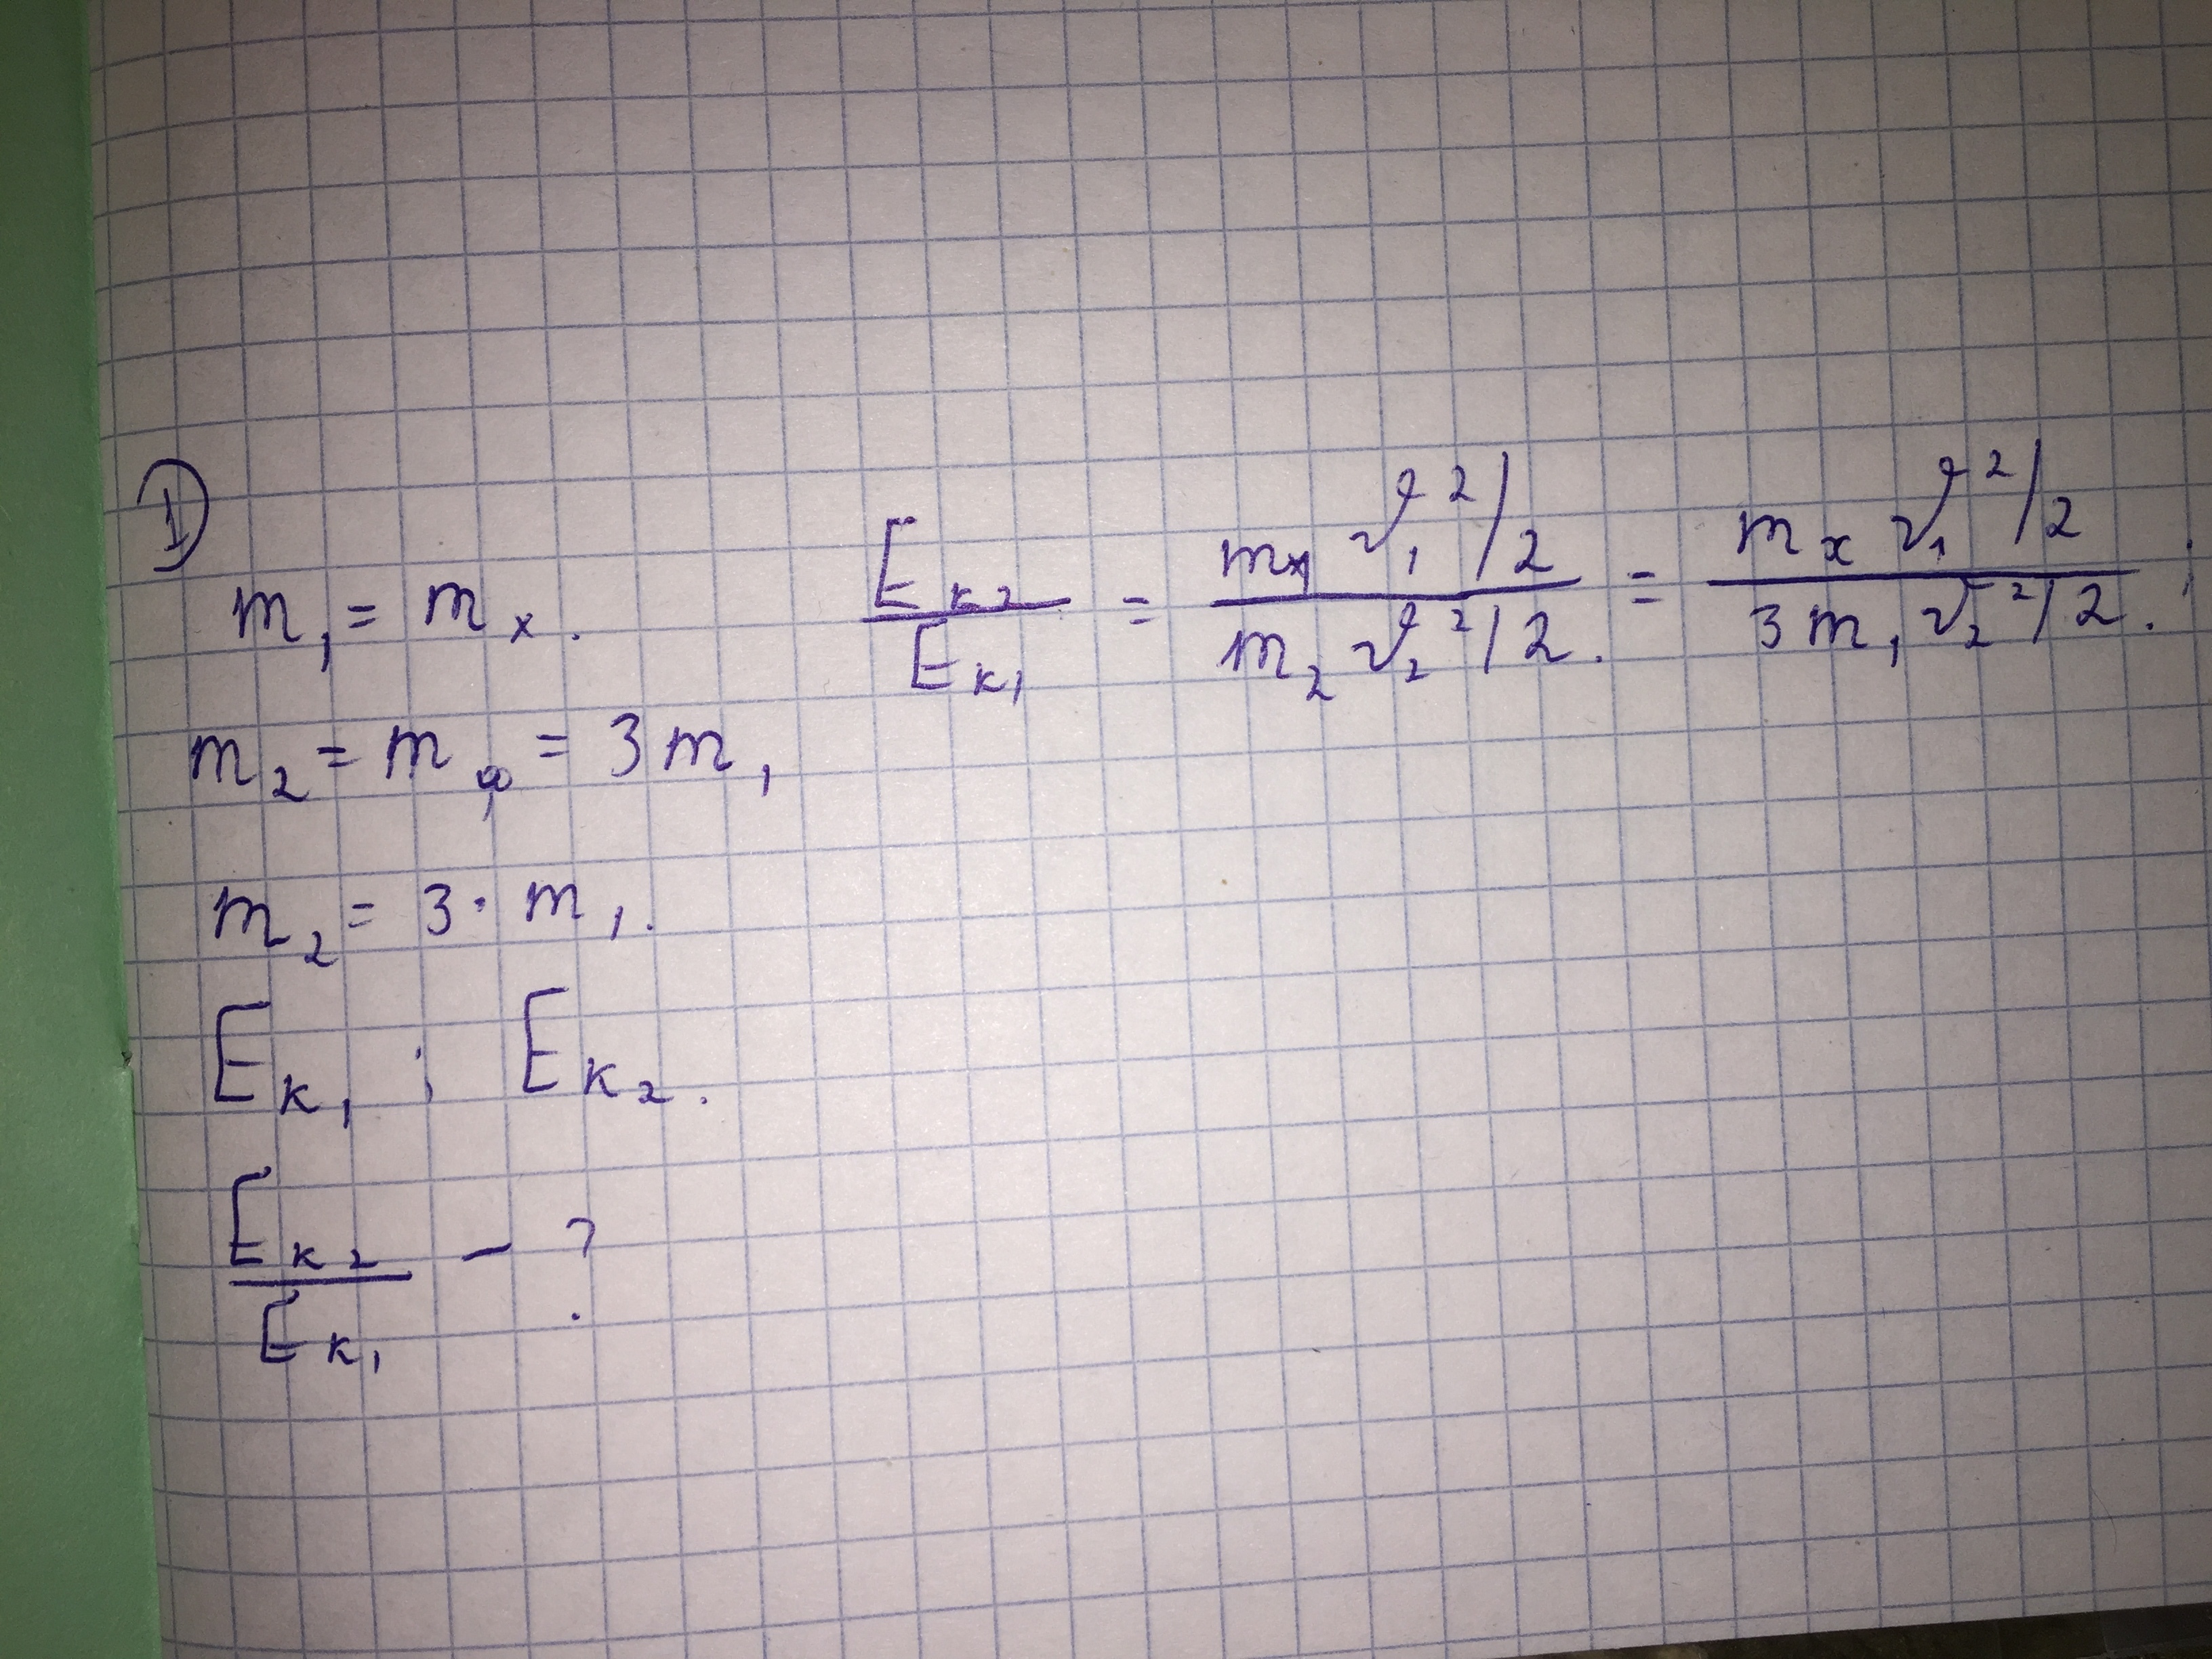 ①
m₁ = mₓ.
m₂ = m_φ = 3m₁
m₂ = 3 · m₁.
Eк₁ ; Eк₂.
Eк₂ / Eк₁ — ?
Eк₂ / Eк₁ = mₓ₁ v₁²/2 / m₂ v₂²/2. = mₓ v₁²/2 / 3m₁ v₂²/2. ;